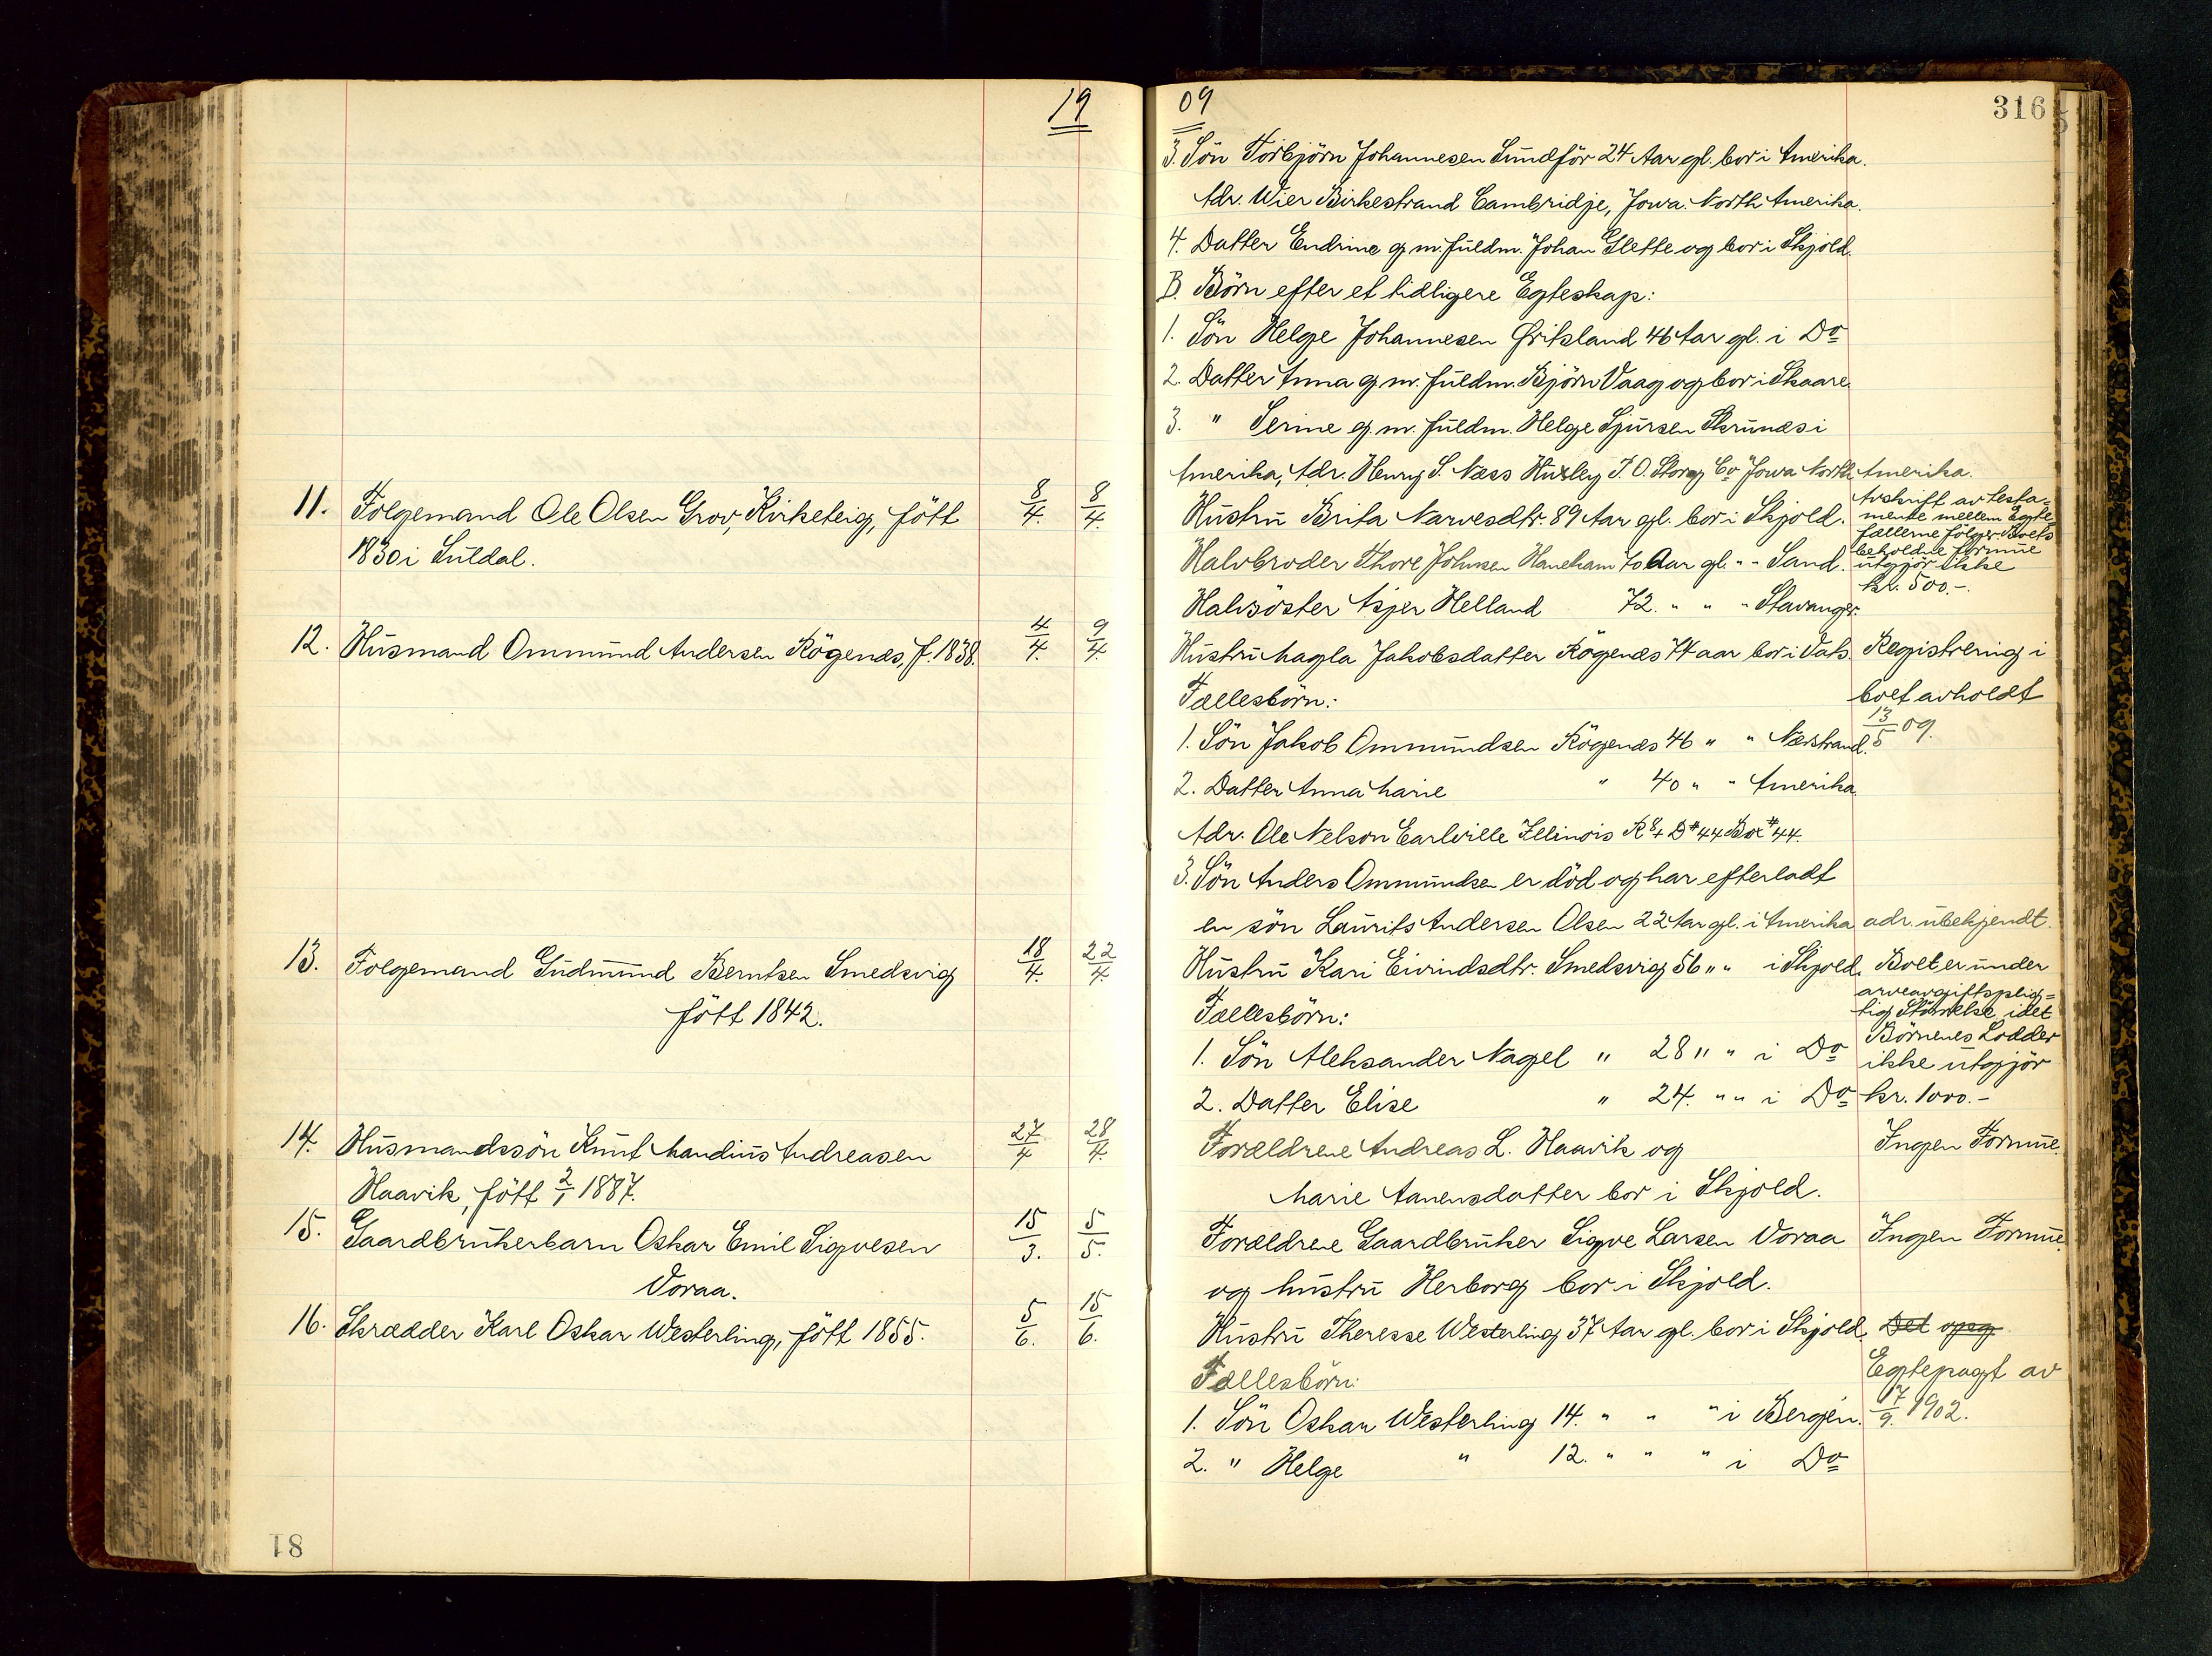 19
11. Folgemand Ole Olsen Grov, Kirketeig, fött 8/4. 8/4.
1830 i Suldal.
12. Husmand Ommund Andersen Rögenes, f. 1838. 4/4. 9/4.
13. Folgemand Gudmund Berntsen Smedsvig 18/4. 22/4.
fött 1842.
14. Husmandssön Knut Mandius Andreasen 27/4 28/4.
Haavik, fött 2/1 1887.
15. Gaardbrukerbarn Oskar Emil Sigvesen 15/3. 5/5.
Voraa.
16. Skrædder Karl Oskar Westerling, fött 1855. 5/6. 15/6.
81
09
316
3. Sön Torbjörn Johannesen Sundför 24 Aar gl. bor i Amerika.
Adr. Wier Birkestrand Cambridje, Jowa. North Amerika.
4. Datter Endrine g. m. fuldm. Johan Slette og bor i Skjold.
B. Börn efter et tidligere Egteskap:
1. Sön Helge Johannesen Gritsland 46 Aar gl. i Do
2. Datter Anna g. m. fuldm. Björn Vaag og bor i Skaare.
3. " Serine g. m. fuldm. Helge Sjursen Skrunes i
Amerika, Adr. Henry S. Næss Huxley J. O. Story Co Jowa North Amerika.
Hustru Brita Narvesdtr. 89 Aar gl. bor i Skjold.
Avskrift av testa=
mente mellem Egte
fællerne fölger. Boets
beholdne formue
utgjör ikke
kr. 500.-.
Halvbroder Thore Johnsen Haneham 70 Aar gl. " " Sand.
Halvsöster Asper Helland 72. " " " Stavanger.
Hustru Magla Jakobsdatter Rögenes 74 aar bor i Vats. Registrering i
Fællesbörn: boet avholdt
13/5 09.
1. Sön Jakob Ommundsen Rögenes 46 " " Nærstrand.
2. Datter Anna Marie " 40 " " Amerika.
Adr. Ole Nelson Earlville Illinois R 8+ D# 44 Box #44.
3. Sön Anders Ommundsen er död og har efterladt
en sön Laurits Andersen Olsen 22 Aar gl. i Amerika adr. ubekjendt.
Hustru Kari Eivindsdtr. Smedsvig 56 " " i Skjold. Boet er under
arveavgiftsplig=
tig Störrelse, idet
Börnenes Lodder
ikke utgjör
kr. 1000.-
Fællesbörn:
1. Sön Aleksander Nagel " 28 " " i Do
2. Datter Elise " 24. " " i Do
Forældrene Andreas L. Haavik og Ingen Formue.
Marie Aanensdatter bor i Skjold.
Forældrene Gaardbruker Sigve Larsen Voraa Ingen Formue.
og hustru Herborg bor i Skjold.
Hustru Theresse Westerling 37 Aar gl. bor i Skjold. Det opsg
Fællesbörn: Egtepagt av
17/9. 1902.
1. Sön Oskar Westerling 14. " " " i Bergen.
2. " Helge " 12. " " " i Do